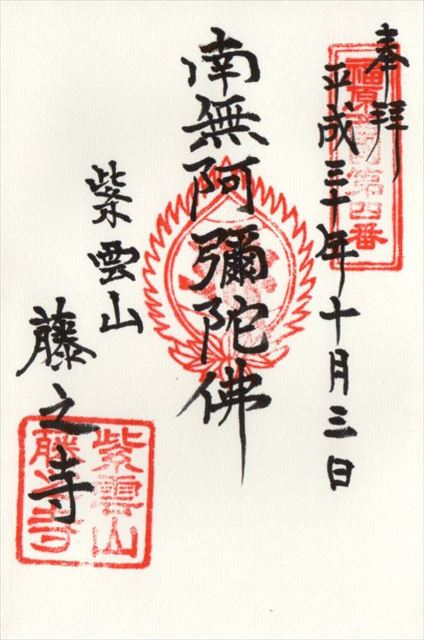 奉拝
平成三十年十月三日
南無阿彌陀佛
紫雲山
藤之寺
第四番
紫雲山
藤之寺